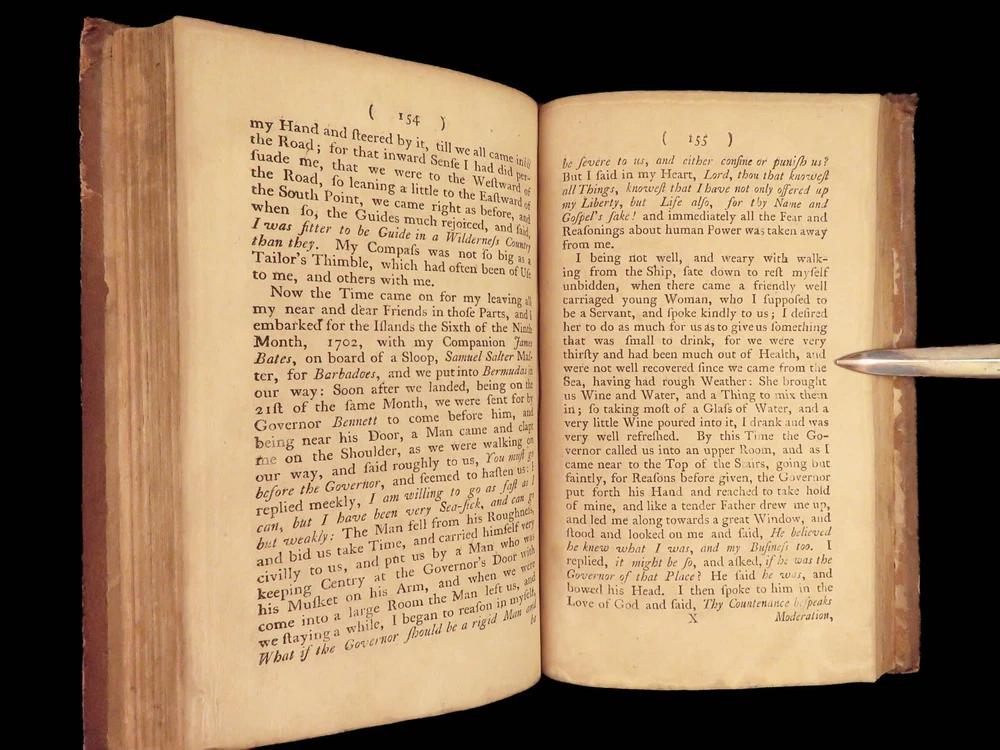 ( 154 )
my Hand and ſteered by it, till we all came into
the Road; for that inward Senſe I had did per-
ſuade me, that we were to the Weſtward of
the Road, ſo leaning a little to the Eaſtward of
the South Point, we came right as before, and
when ſo, the Guides much rejoiced, and ſaid,
I was fitter to be Guide in a Wilderneſs Country
than they. My Compaſs was not ſo big as a
Tailor's Thimble, which had often been of Uſe
to me, and others with me.
Now the Time came on for my leaving all
my near and dear Friends in thoſe Parts, and I
embarked for the Iſlands the Sixth of the Ninth
Month, 1702, with my Companion James
Bates, on board of a Sloop, Samuel Salter Maſ-
ter, for Barbadoes, and we put into Bermudas in
our way: Soon after we landed, being on the
21ſt of the ſame Month, we were ſent for by
Governor Bennett to come before him, and
being near his Door, a Man came and clapt
me on the Shoulder, as we were walking on
our way, and ſaid roughly to us, You muſt go
before the Governor, and ſeemed to haſten us: I
replied meekly, I am willing to go as faſt as I
can, but I have been very Sea-ſick, and can go
but weakly: The Man fell from his Roughneſs,
and bid us take Time, and carried himſelf very
civilly to us, and put us by a Man who was
keeping Centry at the Governor's Door with
his Muſket on his Arm, and when we were
come into a large Room the Man left us, and
we ſtaying a while, I began to reaſon in myſelf,
What if the Governor ſhould be a rigid Man and
be
( 155 )
be ſevere to us, and either confine or puniſh us?
But I ſaid in my Heart, Lord, thou that knoweſt
all Things, knoweſt that I have not only offered up
my Liberty, but Life alſo, for thy Name and
Goſpel's ſake! and immediately all the Fear and
Reaſonings about human Power was taken away
from me.
I being not well, and weary with walk-
ing from the Ship, ſate down to reſt myſelf
unbidden, when there came a friendly well
carriaged young Woman, who I ſuppoſed to
be a Servant, and ſpoke kindly to us; I deſired
her to do as much for us as to give us ſomething
that was ſmall to drink, for we were very
thirſty and had been much out of Health, and
were not well recovered ſince we came from the
Sea, having had rough Weather: She brought
us Wine and Water, and a Thing to mix them
in; ſo taking moſt of a Glaſs of Water, and a
very little Wine poured into it, I drank and was
very well refreſhed. By this Time the Go-
vernor called us into an upper Room, and as I
came near to the Top of the Stairs, going but
faintly, for Reaſons before given, the Governor
put forth his Hand and reached to take hold
of mine, and like a tender Father drew me up,
and led me along towards a great Window, and
ſtood and looked on me and ſaid, He believed
he knew what I was, and my Buſineſs too. I
replied, it might be ſo, and aſked, if he was the
Governor of that Place? He ſaid he was, and
bowed his Head. I then ſpoke to him in the
Love of God and ſaid, Thy Countenance beſpeaks
X Moderation,